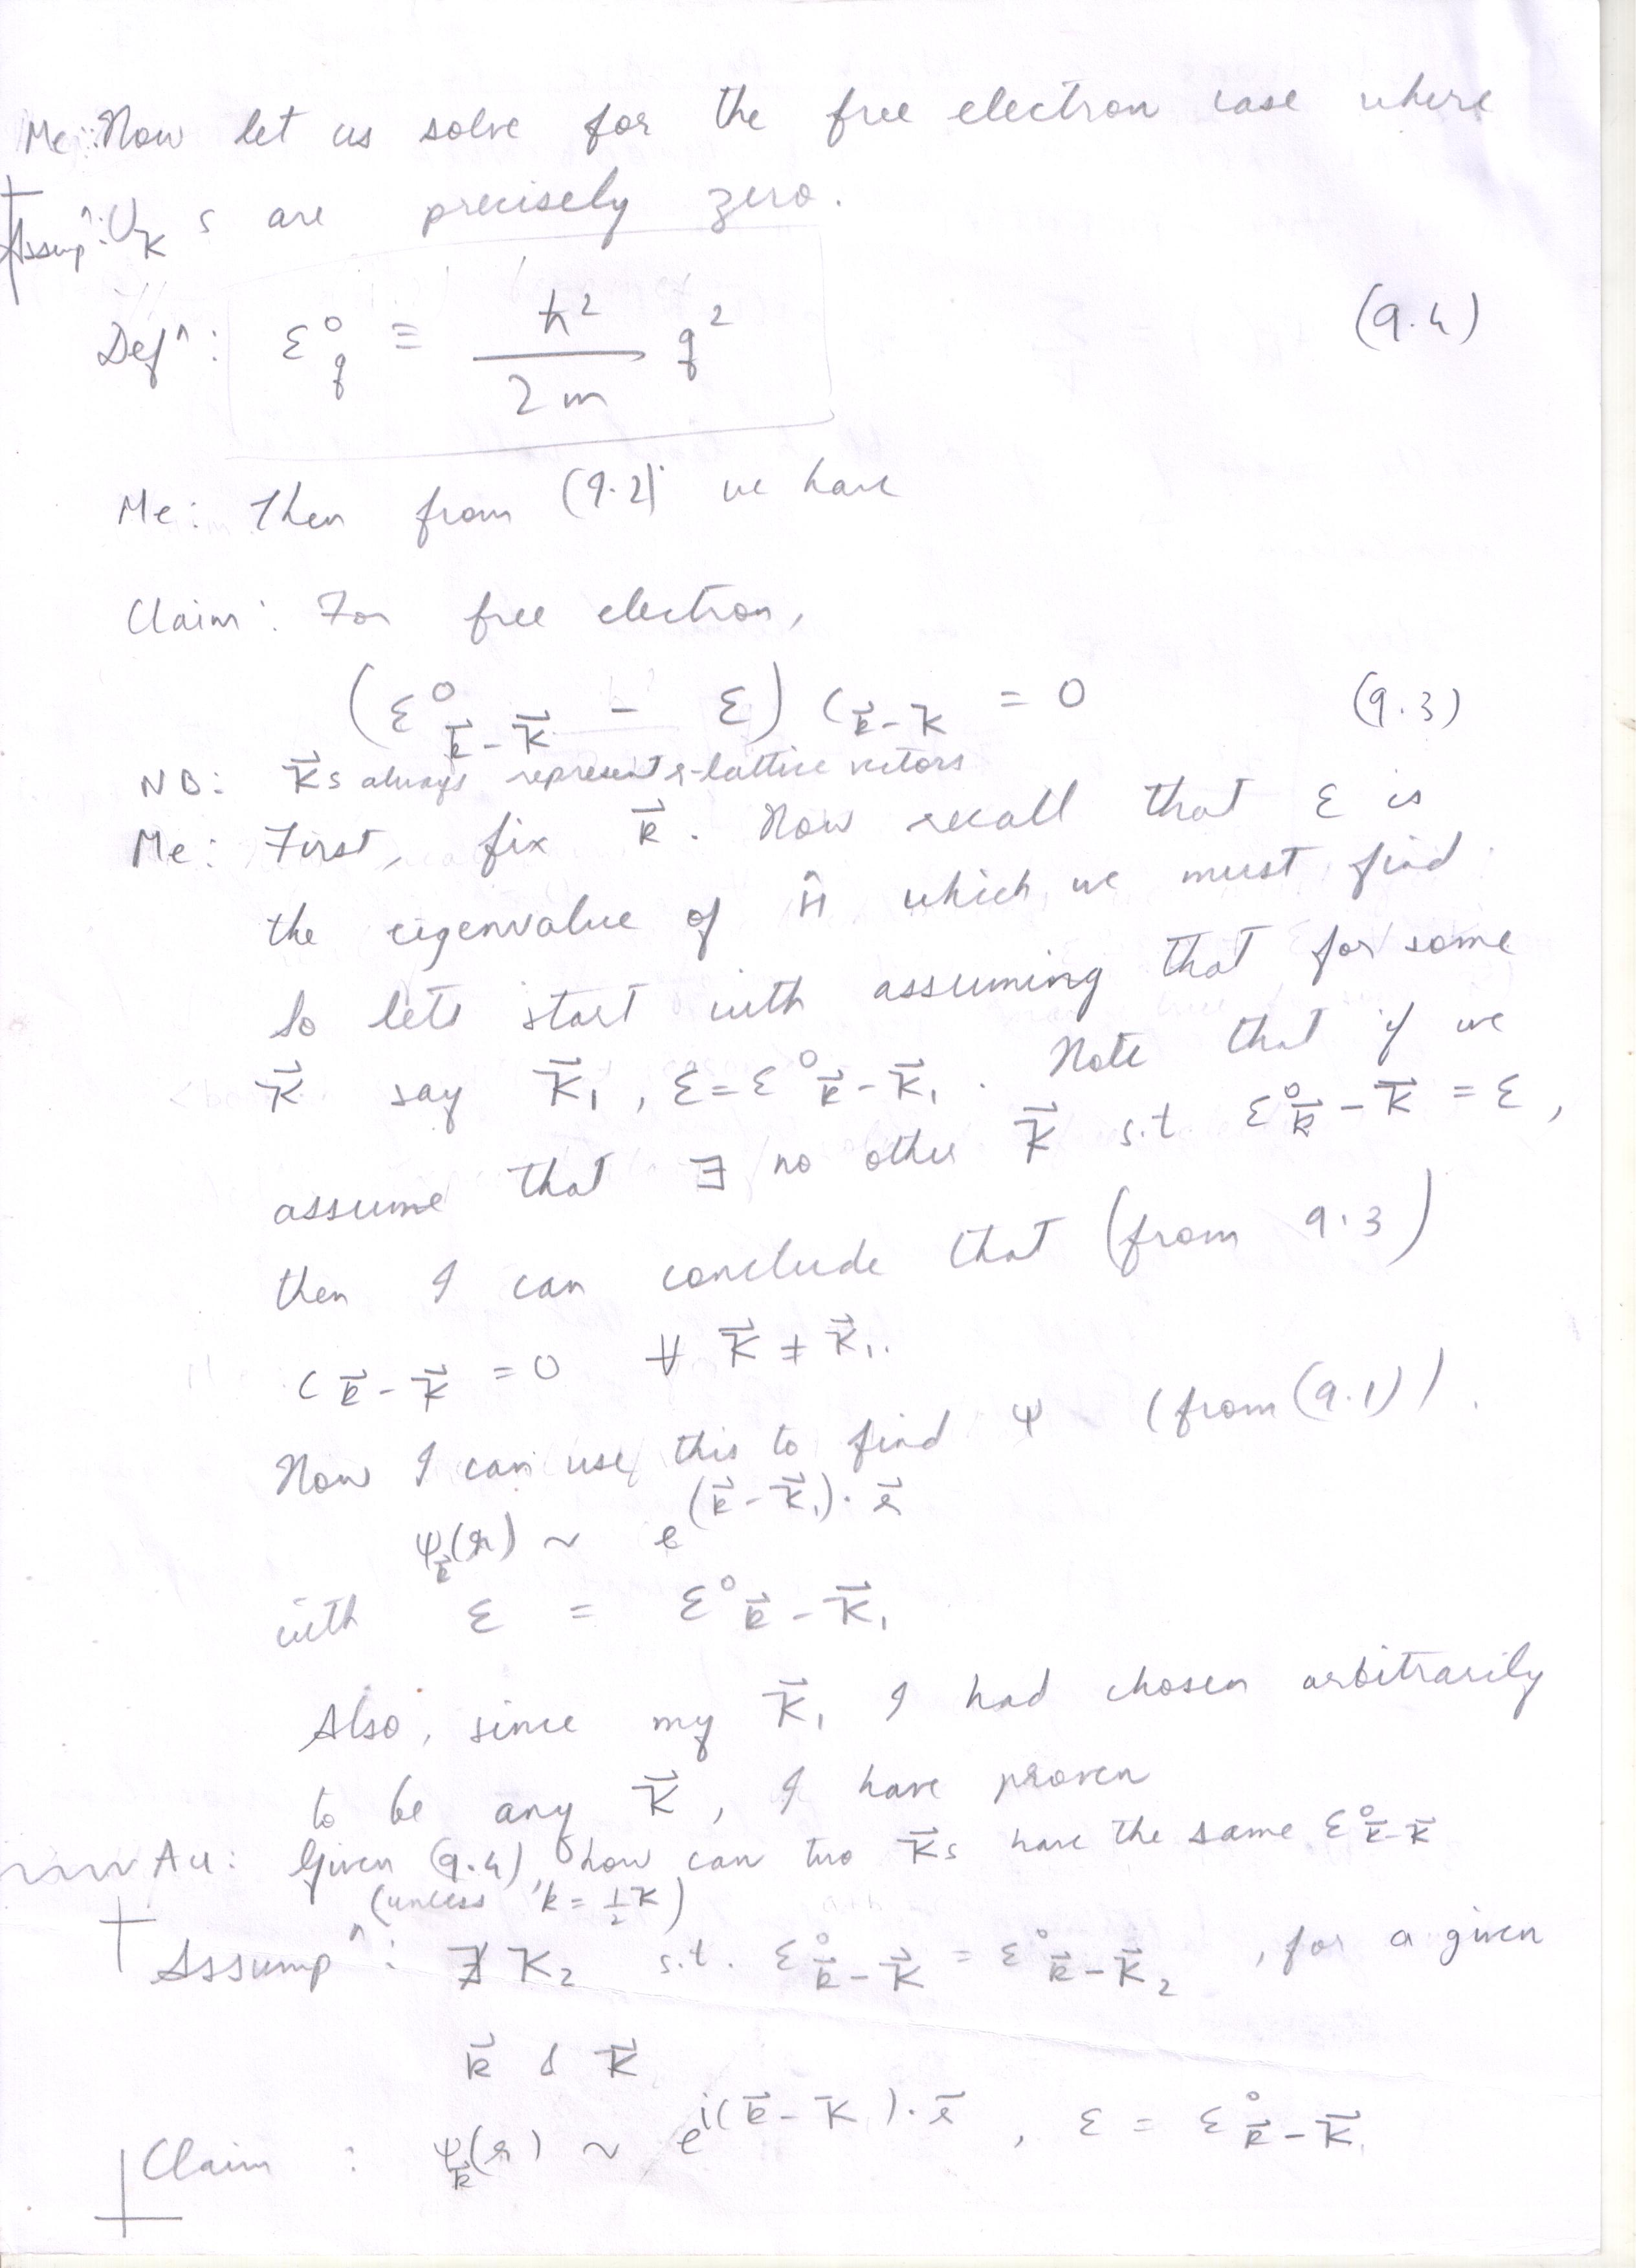 Me: Now let us solve for the free electron case where
Assumpⁿ: U_K⃗ s are precisely zero.
Defⁿ: ε⁰_q ≡ ℏ²/2m q² (9.4)
Me: Then from (9.2) we have
Claim: For free electron,
(ε⁰_k⃗-K⃗ - ε) C_k⃗-K⃗ = 0 (9.3)
NB: K⃗s always represent r-lattice vectors
Me: First, fix k⃗. Now recall that ε is
the eigenvalue of Ĥ which we must find.
So lets start with assuming that for some
K⃗ say K⃗₁, ε = ε⁰_k⃗-K⃗₁. Note that if we
assume that ∃ no other K⃗ s.t ε⁰_k⃗-K⃗ = ε,
then I can conclude that (from 9.3)
C_k⃗-K⃗ = 0 ∀ K⃗ ≠ K⃗₁.
Now I can use this to find ψ (from (9.1)).
ψ_k⃗(r) ~ e^(k⃗-K⃗₁)·r⃗
with ε = ε⁰_k⃗-K⃗₁
Also, since my K⃗₁ I had chosen arbitrarily
to be any K⃗, I have proven
Au: Given (9.4), how can two K⃗s have the same ε⁰_k⃗-K⃗
(unless k = ½K)
Assumpⁿ: ∄ K₂ s.t. ε⁰_k⃗-K⃗ = ε⁰_k⃗-K⃗₂, for a given
k⃗ & K⃗
Claim : ψ_k⃗(r) ~ e^i(k⃗-K⃗)·r⃗, ε = ε⁰_k⃗-K⃗